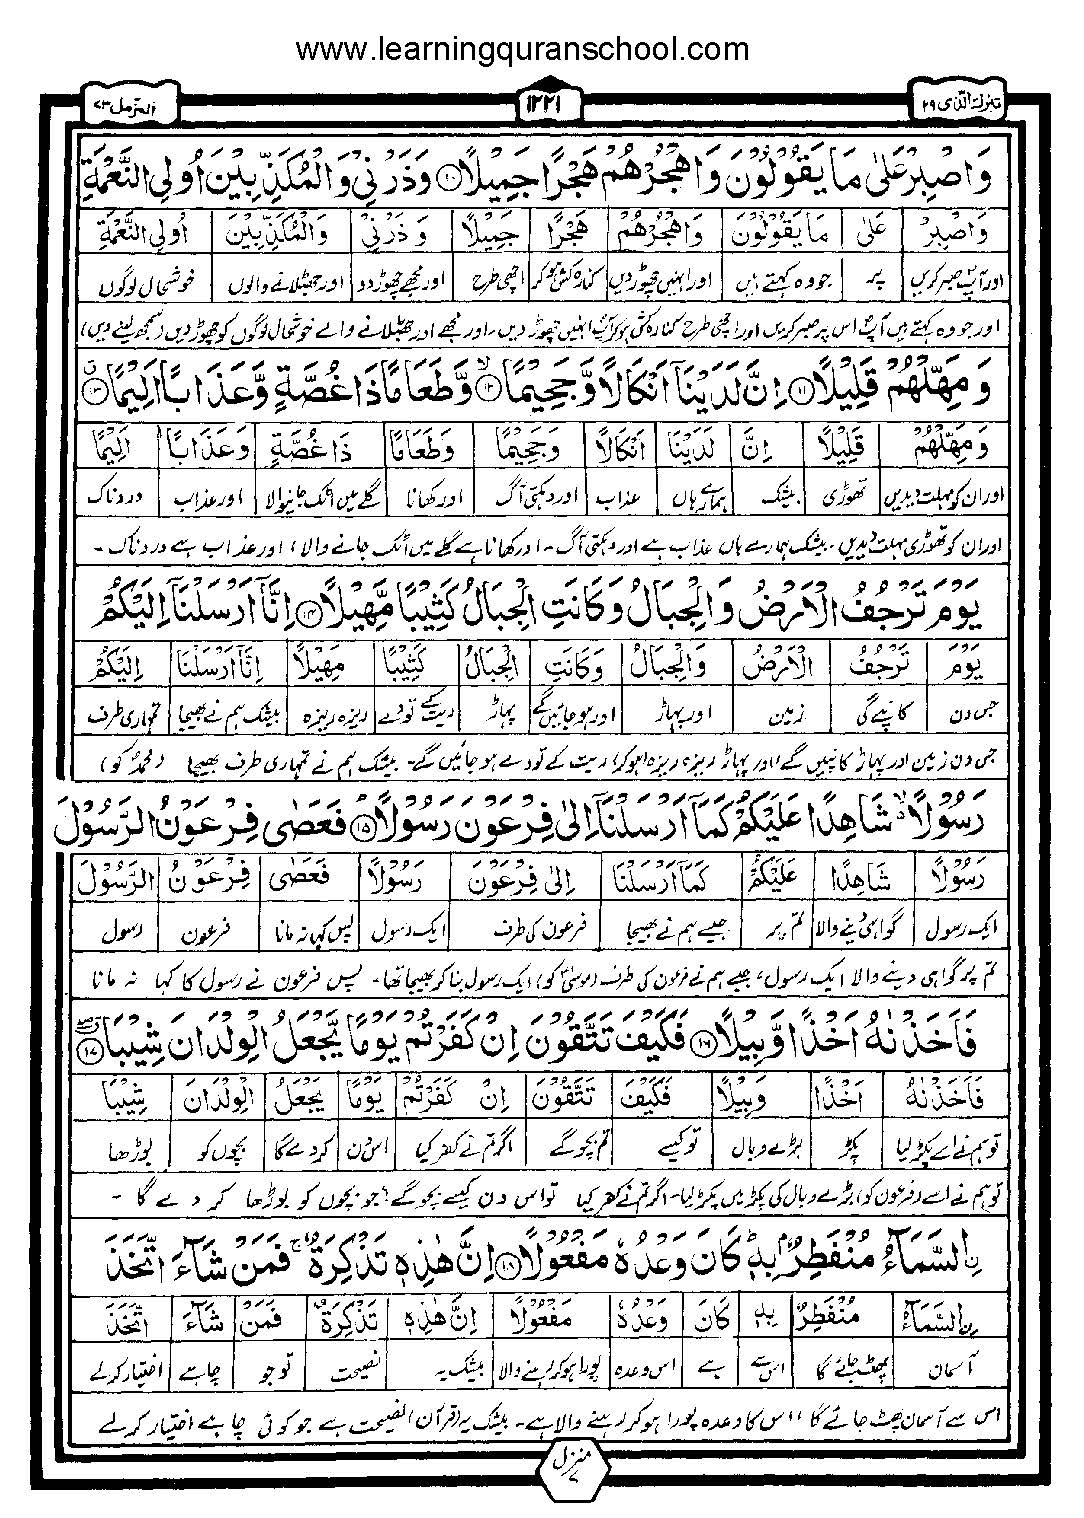 www.learningquranschool.com
تبٰرك الّذی ٢٩
١٢٢١
المزّمل ٧٣
وَاصْبِرْ عَلٰی مَا يَقُوْلُوْنَ وَاهْجُرْهُمْ هَجْرًا جَمِيْلًا ﴿١٠﴾ وَذَرْنِيْ وَالْمُكَذِّبِيْنَ اُولِی النَّعْمَةِ
وَاصْبِرْ عَلٰی مَا يَقُوْلُوْنَ وَاهْجُرْهُمْ هَجْرًا جَمِيْلًا وَذَرْنِيْ وَالْمُكَذِّبِيْنَ اُولِی النَّعْمَةِ
اور آپ صبر کریں پر جو وہ کہتے ہیں اور انہیں چھوڑ دیں کنارہ کش ہو کر اچھی طرح اور مجھے چھوڑ دو اور جھٹلانے والوں خوشحال لوگوں
اور جو وہ کہتے ہیں آپؐ اس پر صبر کریں اور اچھی طرح کنارہ کش ہو کر آپؐ انہیں چھوڑ دیں ، اور مجھے اور جھٹلانے والے خوشحال لوگوں کو چھوڑ دیں (سمجھ لینے دیں)
وَمَهِّلْهُمْ قَلِيْلًا ﴿١١﴾ اِنَّ لَدَيْنَآ اَنْكَالًا وَّجَحِيْمًا ﴿١٢﴾ وَّطَعَامًا ذَا غُصَّةٍ وَّعَذَابًا اَلِيْمًا ﴿١٣﴾
وَمَهِّلْهُمْ قَلِيْلًا اِنَّ لَدَيْنَا اَنْكَالًا وَجَحِيْمًا وَطَعَامًا ذَا غُصَّةٍ وَعَذَابًا اَلِيْمًا
اور ان کو مہلت دیدیں تھوڑی بیشک ہمارے ہاں عذاب اور دہکتی آگ اور کھانا گلے میں اٹک جانیوالا اور عذاب دردناک
اور ان کو تھوڑی مہلت دیدیں ۔ بیشک ہمارے ہاں عذاب ہے اور دہکتی آگ ۔ اور کھانا ہے گلے میں اٹک جانے والا ، اور عذاب ہے دردناک ۔
يَوْمَ تَرْجُفُ الْاَرْضُ وَالْجِبَالُ وَكَانَتِ الْجِبَالُ كَثِيْبًا مَّهِيْلًا ﴿١٤﴾ اِنَّآ اَرْسَلْنَآ اِلَيْكُمْ
يَوْمَ تَرْجُفُ الْاَرْضُ وَالْجِبَالُ وَكَانَتِ الْجِبَالُ كَثِيْبًا مَهِيْلًا اِنَّآ اَرْسَلْنَا اِلَيْكُمْ
جس دن کانپے گی زمین اور پہاڑ اور ہو جائیں گے پہاڑ ریت کے تودے ریزہ ریزہ بیشک ہم نے بھیجا تمہاری طرف
جس دن زمین اور پہاڑ کانپیں گے اور پہاڑ ریزہ ریزہ (ہو کر) ریت کے تودے ہو جائیں گے ۔ بیشک ہم نے تمہاری طرف بھیجا (محمدؐ کو)
رَسُوْلًا شَاهِدًا عَلَيْكُمْ كَمَآ اَرْسَلْنَآ اِلٰی فِرْعَوْنَ رَسُوْلًا ﴿١٥﴾ فَعَصٰی فِرْعَوْنُ الرَّسُوْلَ
رَسُوْلًا شَاهِدًا عَلَيْكُمْ كَمَآ اَرْسَلْنَا اِلٰی فِرْعَوْنَ رَسُوْلًا فَعَصٰی فِرْعَوْنُ الرَّسُوْلَ
ایک رسول گواہی دینے والا تم پر جیسے ہم نے بھیجا فرعون کی طرف ایک رسول پس کہا نہ مانا فرعون رسول
تم پر گواہی دینے والا ایک رسول ، جیسے ہم نے فرعون کی طرف (موسیٰؑ کو) ایک رسول بنا کر بھیجا تھا ۔ پس فرعون نے رسول کا کہا نہ مانا
فَاَخَذْنٰهُ اَخْذًا وَّبِيْلًا ﴿١٦﴾ فَكَيْفَ تَتَّقُوْنَ اِنْ كَفَرْتُمْ يَوْمًا يَّجْعَلُ الْوِلْدَانَ شِيْبًا ﴿١٧﴾
فَاَخَذْنٰهُ اَخْذًا وَبِيْلًا فَكَيْفَ تَتَّقُوْنَ اِنْ كَفَرْتُمْ يَوْمًا يَجْعَلُ الْوِلْدَانَ شِيْبًا
تو ہم نے اسے پکڑ لیا پکڑ بڑے وبال تو کیسے تم بچو گے اگر تم نے کفر کیا اس دن کر دے گا بچوں کو بوڑھا
تو ہم نے اسے (فرعون کو) بڑے وبال کی پکڑ میں پکڑ لیا ۔ اگر تم نے کفر کیا تو اس دن کیسے بچو گے ؟ جو بچوں کو بوڑھا کر دے گا ۔
ۣالسَّمَآءُ مُنْفَطِرٌۢ بِهٖ كَانَ وَعْدُهٗ مَفْعُوْلًا ﴿١٨﴾ اِنَّ هٰذِهٖ تَذْكِرَةٌ ۚ فَمَنْ شَآءَ اتَّخَذَ
ۣالسَّمَآءُ مُنْفَطِرٌ بِهٖ كَانَ وَعْدُهٗ مَفْعُوْلًا اِنَّ هٰذِهٖ تَذْكِرَةٌ فَمَنْ شَآءَ اتَّخَذَ
آسمان پھٹ جائے گا اس سے ہے اس وعدہ پورا ہو کر رہنے والا بیشک یہ نصیحت تو جو چاہے اختیار کر لے
اس سے آسمان پھٹ جائے گا ، اس کا وعدہ پورا ہو کر رہنے والا ہے ۔ بیشک یہ (قرآن) نصیحت ہے جو کوئی چاہے اختیار کر لے
منزل ٧